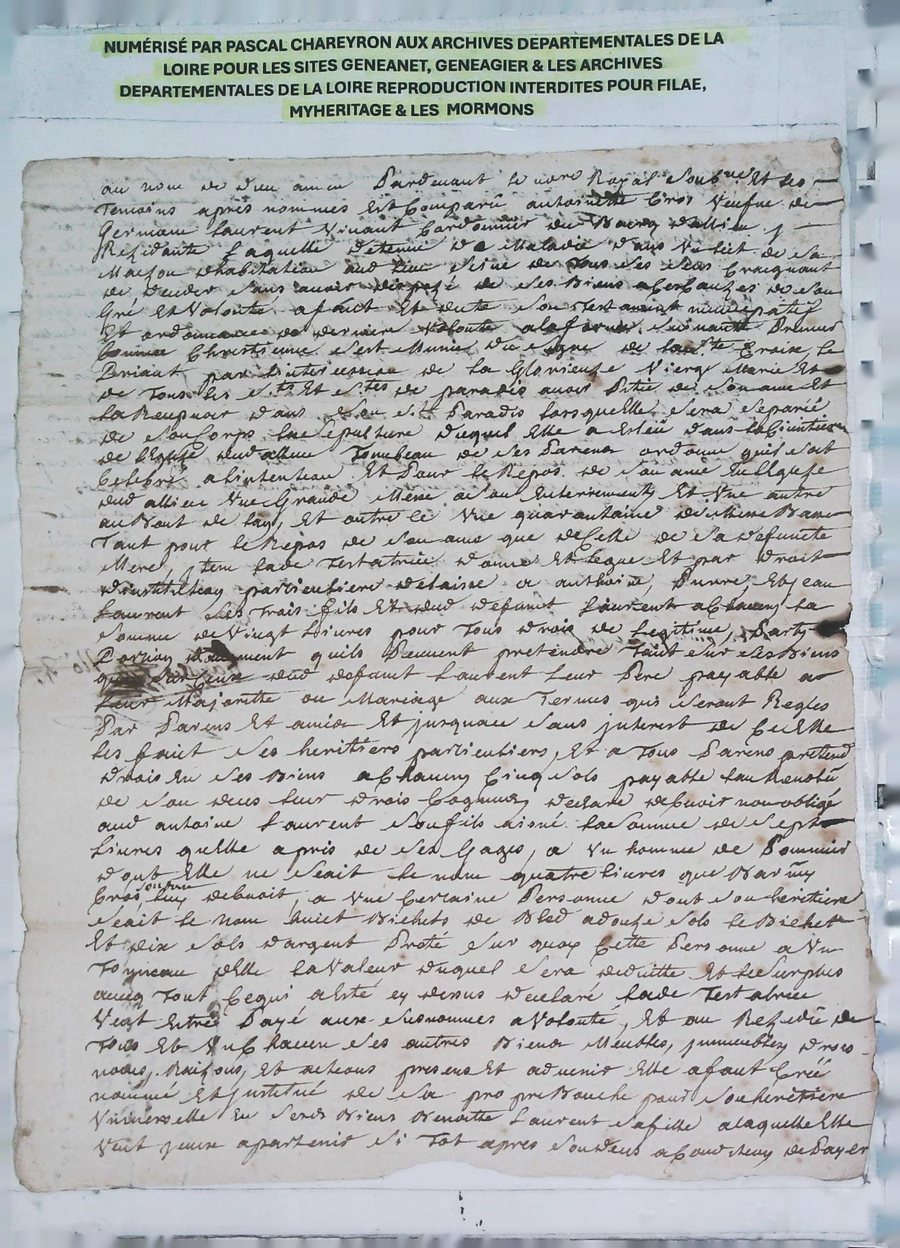 NUMÉRISÉ PAR PASCAL CHAREYRON AUX ARCHIVES DEPARTEMENTALES DE LA
LOIRE POUR LES SITES GENEANET, GENEAGIER & LES ARCHIVES
DEPARTEMENTALES DE LA LOIRE REPRODUCTION INTERDITES POUR FILAE,
MYHERITAGE & LES MORMONS
au nom de dieu amen Pardevant le no.re Royal Soub.né Et les
Temoins apres nommes Est Comparu antoinette Cros Veufue de
Germain Laurent Vivant Cordonnier du Bourg dallieu y
Rezidante Laquelle detenue de Maladie dans Un Lict de sa
Maison dhabitation aud lieu Seine de tous ses sens Craignant
de deceder sans avoir dispozé de ses Biens a
Gré Et Volonté a fait Et dicte son testament nuncupatif
Et ordonnance de derniere Volonté a la forme Suivante Premier
Comme Chrestienne sest Munie du signe de la Ste Croix, le
Priant par lintercession de la Glorieuse Vierge Marie Et
de Tous les S.ts Et S.tes de paradis avoir Pitié de son ame Et
La Recepvoir dans son St Paradis lorsquelle sera separée
de son Corps la sepulture duquel Elle a Esleü dans le Cimetiere
de lEglise dud allieu Tombeau de ses Parens ordonne quil soit
Celebré a lintention Et Pour le Repos de son ame En lEglise
dud allieu Une Grande Messe a son Enterrement, Et Une autre
au Bout de lan, Et outre ce Une quarantaine de Messe Basse
Tant pour le Repos de son ame que de Celle de sa defuncte
Mere, jtem lade Testatrice donne Et legue Et par droit
dinstitution particuliere delaisse a anthoine, Pierre, Et jean
Laurent ses trois fils Et dud defunct Laurent a Chacun la
somme de Vingt Livres pour Tous drois de Legitime, Part,
Portion quils Peuvent pretendre Tant sur ses Biens
que sur Ceux dud defunt Laurent Leur Pere payable a
Leur Majorité ou Mariage aux Termes quis seront Regles
Par Parens Et amis Et jusquace sans jnterest de Ce Elle
les fait ses heritiers particuliers, Et a Tous Parens pretend
drois En ses Biens a Chacun Cinq sols payable
de son deces leur drois Cognus, declare debvoir non obligé
aud antoine Laurent son fils aisné la somme de sept
Livres quelle a pris de ses Gages, a Un homme de Pommier
dont Elle ne scait le nom quatre livres que Bar.my
Cros luy debvoit, a Une Certaine Personne dont son heritiere
scait le nom huict Bichets de Bled a douze sols le Bichet
Et dix sols dargent Preté sur quoy Cette Personne a Un
Tonneau delle la Valeur duquel sera deduitte Et le surplus
avecq Tout Cequi a Esté cy dessus declaré lade Testatrice
Veut Estre Payé aux susnommes a Volonté, Et au Residu de
Tous Et Un Chacun ses autres Biens Meubles, jmmeubles, drois
noms, Raisons, Et actions presens Et advenir Elle a fait Créé
nommé Et jnstitué de sa propre Bouche pour son heritiere
Universelle En Sesd Biens Benoitte Laurent sa fille a laquelle Elle
Veut jceux apartenir si Tot apres son deces a Condition de Payer